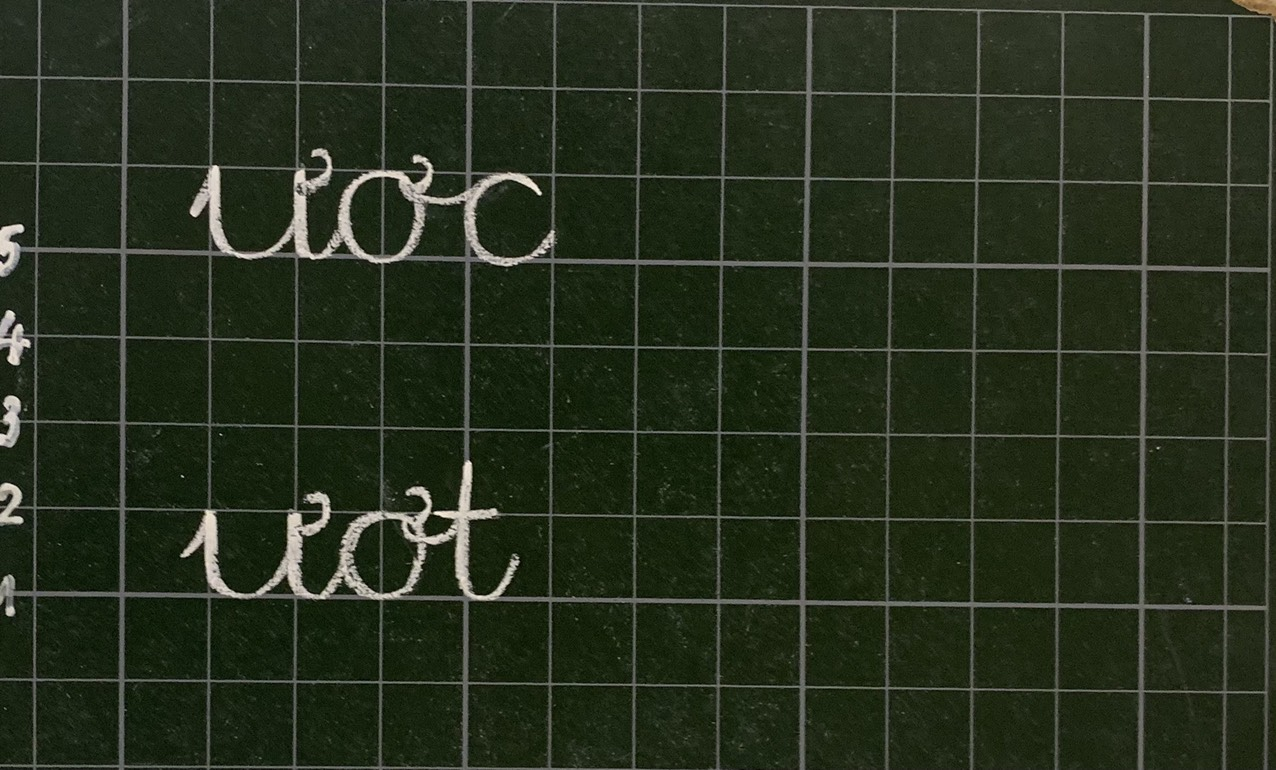 ươc
5
4
3
2
ươt
1